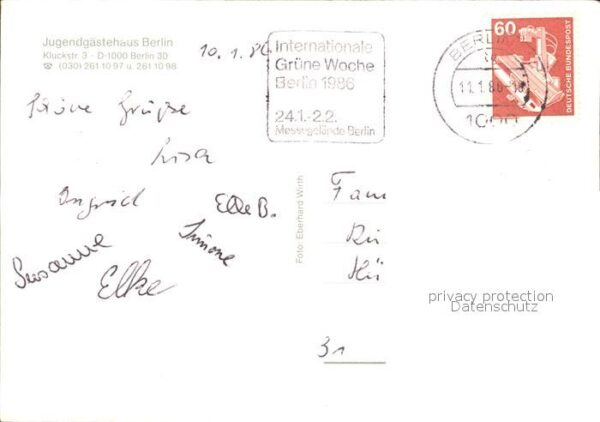 Jugendgästehaus Berlin
Kluckstr. 3 - D-1000 Berlin 30
☎ (030) 261 10 97 u. 261 10 98
10.1.86
Internationale
Grüne Woche
Berlin 1986
24.1.-2.2.
Messegelände Berlin
BERLIN
11.1.86
1000
60
DEUTSCHE BUNDESPOST
Schöne Grüße
Ingrid
Elke B.
Simone
Susanne
Elke
Foto: Eberhard Wirth
Fam
privacy protection
Datenschutz
31